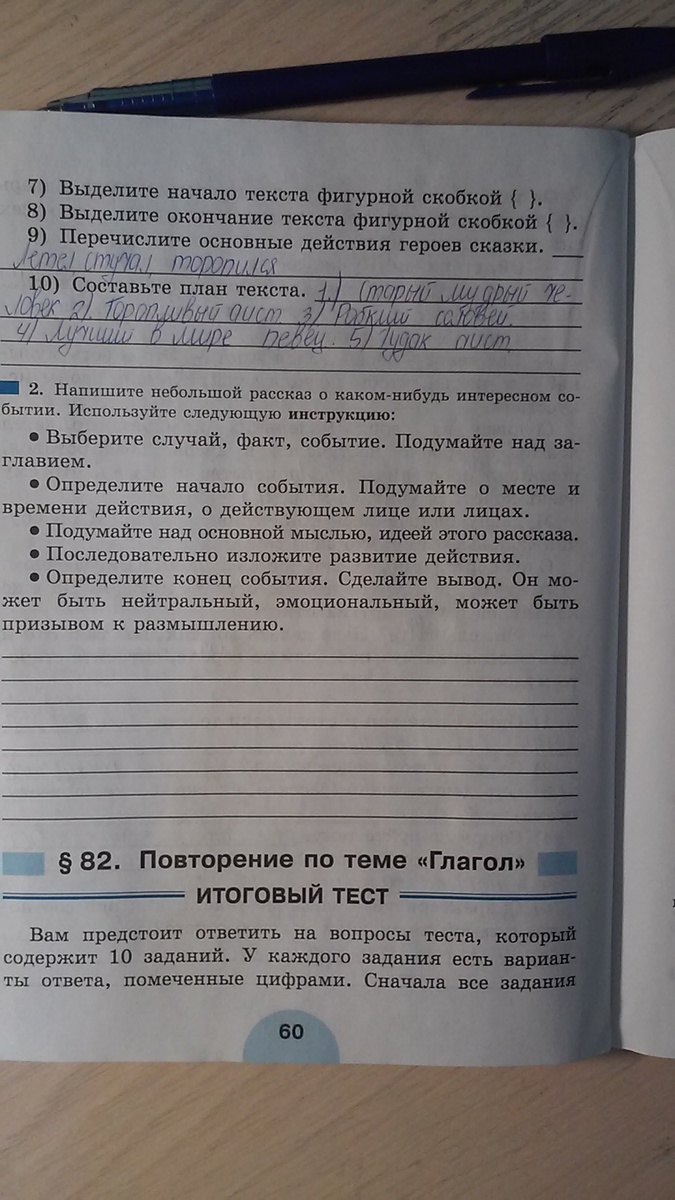 7) Выделите начало текста фигурной скобкой { }.
8) Выделите окончание текста фигурной скобкой { }.
9) Перечислите основные действия героев сказки.
Летел, стучал, торопился
10) Составьте план текста. 1) Старый мудрый че-
ловек 2) Торопливый аист 3) Робкий соловей.
4) Лучший в мире певец. 5) Чудак аист.
2. Напишите небольшой рассказ о каком-нибудь интересном со-
бытии. Используйте следующую инструкцию:
• Выберите случай, факт, событие. Подумайте над за-
главием.
• Определите начало события. Подумайте о месте и
времени действия, о действующем лице или лицах.
• Подумайте над основной мыслью, идеей этого рассказа.
• Последовательно изложите развитие действия.
• Определите конец события. Сделайте вывод. Он мо-
жет быть нейтральный, эмоциональный, может быть
призывом к размышлению.
§ 82. Повторение по теме «Глагол»
ИТОГОВЫЙ ТЕСТ
Вам предстоит ответить на вопросы теста, который
содержит 10 заданий. У каждого задания есть вариан-
ты ответа, помеченные цифрами. Сначала все задания
60